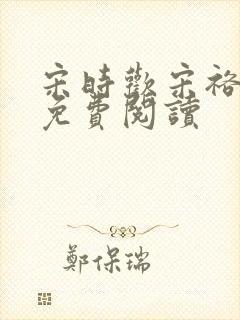 宋時歡宋裕
免費閱讀
鄭保瑞